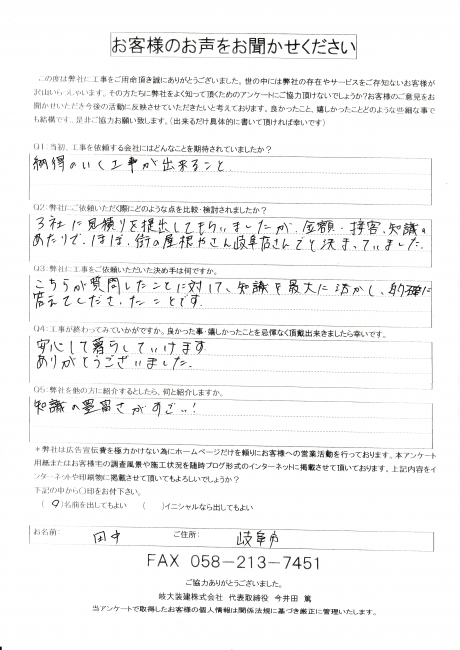 お客様のお声をお聞かせください
この度は弊社に工事をご用命頂き誠にありがとうございました。世の中には弊社の存在やサービスをご存知ないお客様が
沢山いらっしゃいます。その方たちに弊社をよく知って頂くためのアンケートにご協力頂けないでしょうか?お客様のご意見をお
聞かせいただき今後の活動に反映させていただきたいと考えております。良かったこと、嬉しかったことどのような些細な事で
も結構です。是非ご協力お願い致します。(出来るだけ具体的に書いて頂ければ幸いです)
Q1:当初、工事を依頼する会社にはどんなことを期待されていましたか?
納得のいく工事が出来ること
Q2:弊社にご依頼いただく際にどのような点を比較・検討されましたか?
3社に見積りを提出してもらいましたが、金額・接客・知識の
あたりで、ほぼ、街の屋根やさん岐阜店さんでと決まっていました。
Q3:弊社に工事をご依頼いただいた決め手は何ですか。
こちらが質問したことに対して、知識を最大に活かし、的確に
答えてくださったことです。
Q4:工事が終わってみていかがですか。良かった事・嬉しかったことを忌憚なく頂戴出来きましたら幸いです。
安心して暮らしていけます
ありがとうございました。
Q5:弊社を他の方に紹介するとしたら、何と紹介しますか。
知識の豊富さがすごい!
*弊社は広告宣伝費を極力かけない為にホームページだけを頼りにお客様への営業活動を行っております。本アンケート
用紙またはお客様宅の調査風景や施工状況を随時ブログ形式のインターネットに掲載させて頂いております。上記内容をイ
ンターネットや印刷物に掲載させて頂いてもよろしいでしょうか?
下記の中から○印をお付下さい。
( )名前を出してもよい ( )イニシャルなら出してもよい
お名前: 田中 ご住所: 岐阜市
FAX 058-213-7451
ご協力ありがとうございました。
岐大装建株式会社 代表取締役 今井田 篤
当アンケートで取得したお客様の個人情報は関係法規に基づき厳正に管理いたします。